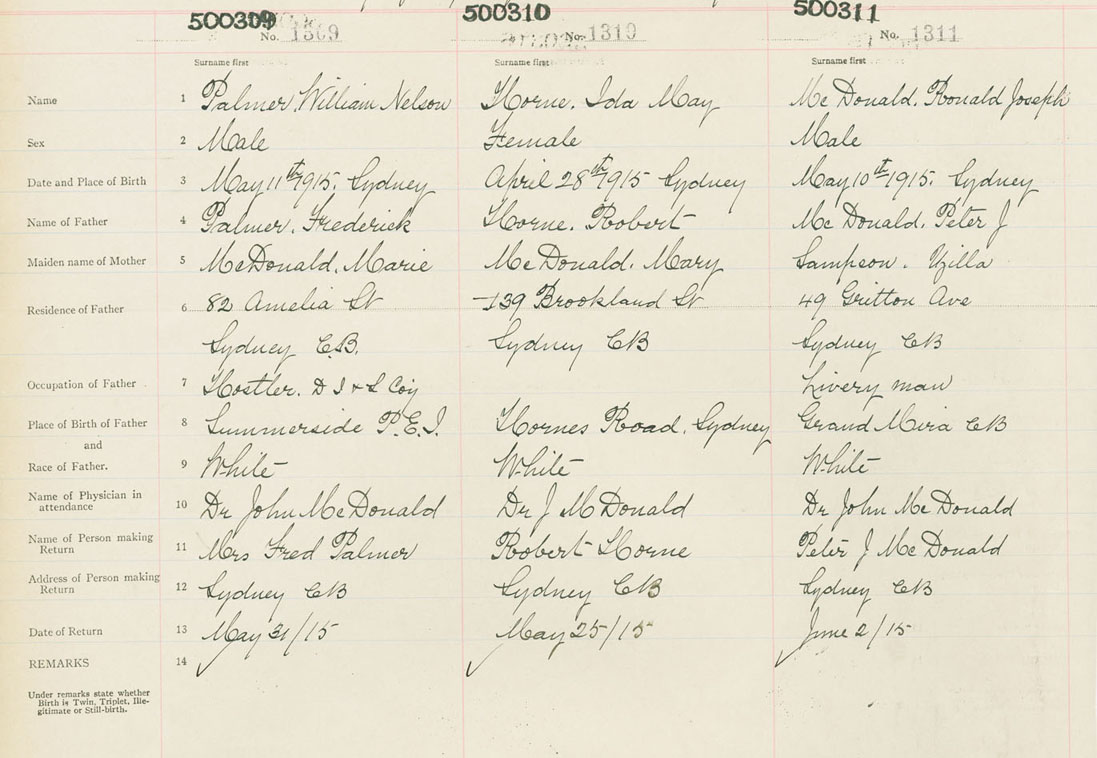 500309 500310 500311
No. 1309 No. 1310 No. 1311
Surname first Surname first Surname first
Name 1 Palmer, William Nelson Horne, Ida May Mc Donald, Ronald Joseph
Sex 2 Male Female Male
Date and Place of Birth 3 May 11th 1915, Sydney April 28th 1915 Sydney May 10th 1915, Sydney
Name of Father 4 Palmer, Frederick Horne, Robert Mc Donald, Peter J
Maiden name of Mother 5 McDonald, Marie McDonald, Mary Sampson,
Residence of Father 6 82 Amelia St 139 Brookland St 49 Gritton Ave
Sydney C.B. Sydney CB Sydney CB
Occupation of Father 7 Hostler, D I & S Coy Livery man
Place of Birth of Father 8 Summerside P.E.I. Hornes Road, Sydney Grand Mira CB
and
Race of Father. 9 White White White
Name of Physician in
attendance 10 Dr John McDonald Dr J McDonald Dr John McDonald
Name of Person making
Return 11 Mrs Fred Palmer Robert Horne Peter J McDonald
Address of Person making
Return 12 Sydney CB Sydney CB Sydney CB
Date of Return 13 May 31/15 May 25/15 June 2/15
REMARKS 14
Under remarks state whether
Birth is Twin, Triplet, Ille-
gitimate or Still-birth.